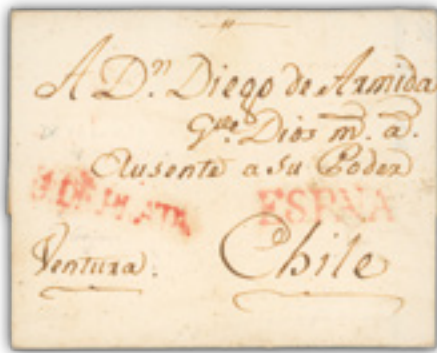 A Dⁿ. Diego de Armida
Gᵘᵉ. Dios mˢ. aˢ.
Ausente a su Poder
R. DE PLATA
ESPNA
Ventura.
Chile